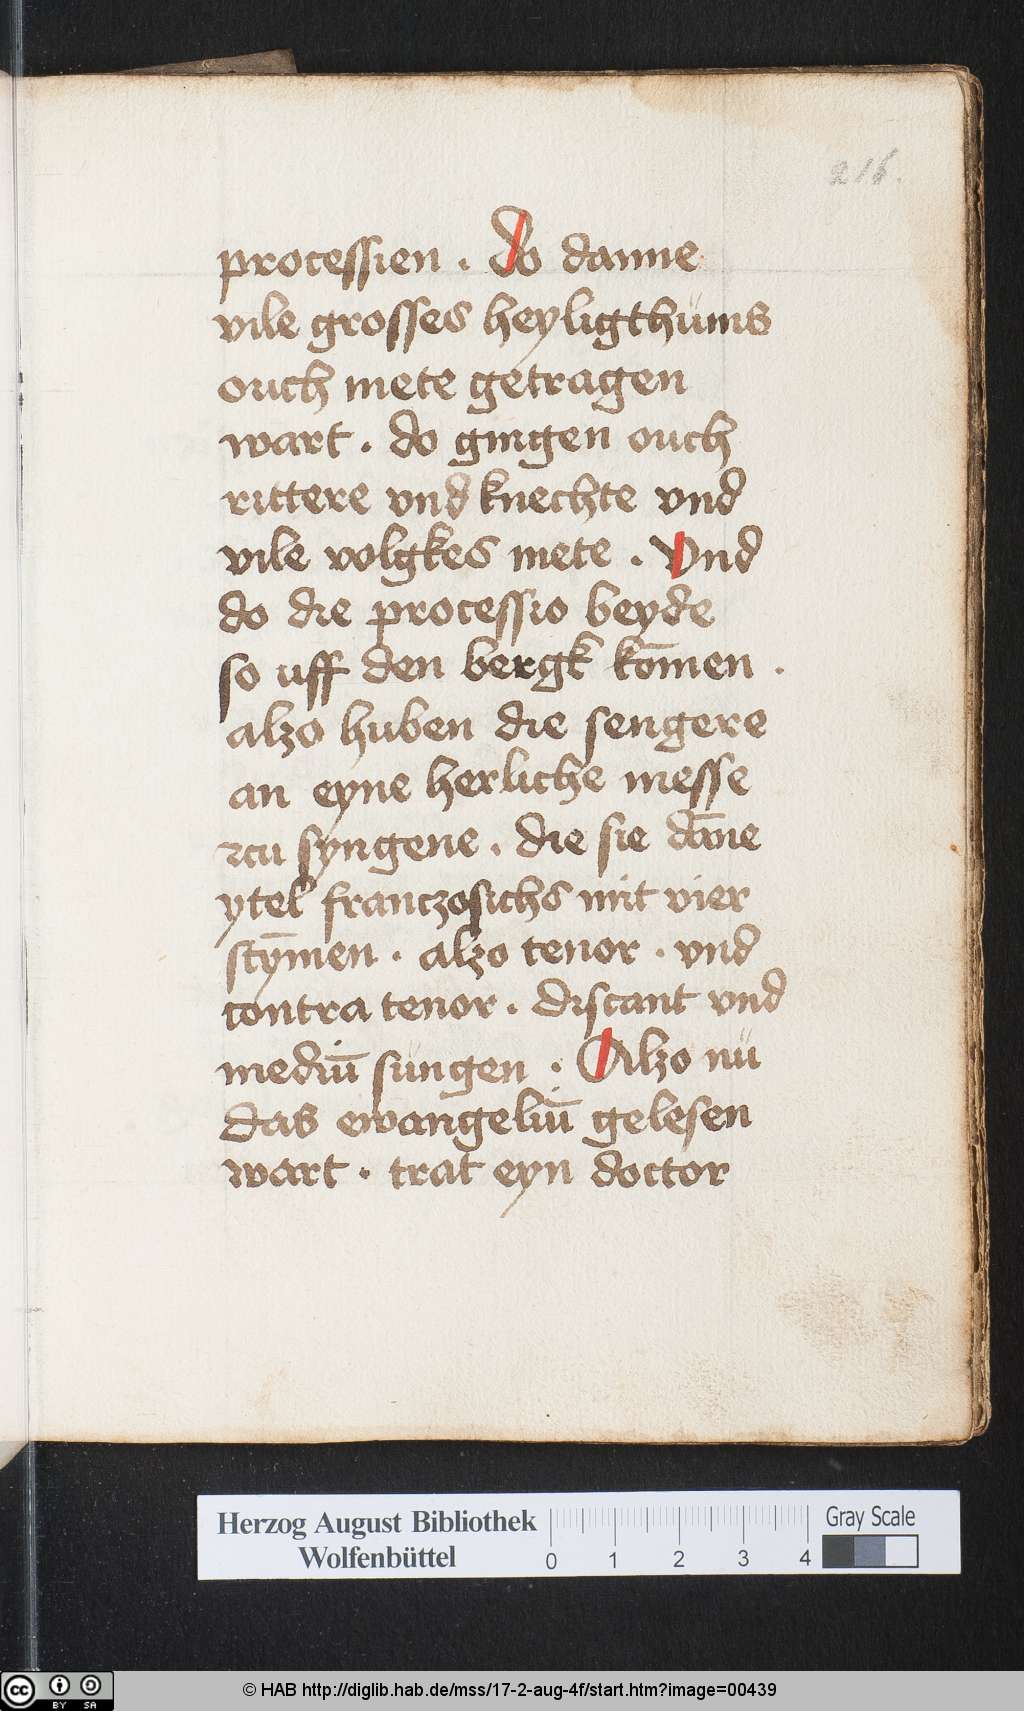 216.
processien . Do danne
vile grosses heyligthums
ouch mete getragen
wart . do gingen ouch
rittere vnd knechte vnd
vile volgkes mete . Vnd
do die processio beyde
so uff den bergk kōmen .
alzo huben die sengere
an eyne herliche messe
zcu syngene . die sie dāne
ytel franczosichs mit vier
stȳmen . alzo tenor . vnd
contra tenor . discant vnd
mediū sungen . Alzo nu
das ewangeliū gelesen
wart . trat eyn doctor
Herzog August Bibliothek
Wolfenbüttel
0 1 2 3 4
Gray Scale
cc BY SA
© HAB http://diglib.hab.de/mss/17-2-aug-4f/start.htm?image=00439